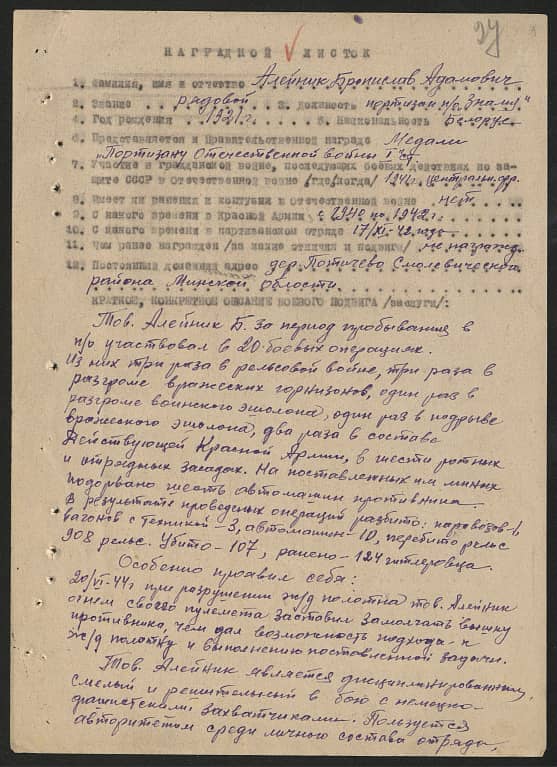 27
НАГРАДНОЙ ЛИСТОК
1. Фамилия, имя и отчество Алейник Бронислав Адамович
2. Звание рядовой 3. Должность партизан п/о "Знамя"
4. Год рождения 1921 г. 5. Национальность Беларус
6. Представляется к Правительственной награде Медали
"Партизану Отечественной войны I ст.
7. Участие в гражданской войне, последующих боевых действиях по за-
щите СССР и Отечественной войне /где, когда/ 1941 г. центральн. фр.
8. Имеет ли ранения и контузии в отечественной войне нет
9. С какого времени в Красной Армии с 1940 по 1942 г.
10. С какого времени в партизанском отряде 17/XI-42 года
11. Чем ранее награжден /за какие отличия и подвиги/ не награжд.
12. Постоянный домашний адрес дер. Потичево Смолевичского
района Минской области
КРАТКОЕ, КОНКРЕТНОЕ ОПИСАНИЕ БОЕВОГО ПОДВИГА /заслуги/:
Тов. Алейник Б. за период пребывания в
п/о участвовал в 20-боевых операциях.
Из них три раза в рельсовой войне, три раза в
разгроме вражеских горнизонов, один раз в
разгроме воинского эшолона, один раз в подрыве
вражеского эшолона, два раза в составе
Действующей Красной Армии, в шести ротных
и отрядных засадах. На поставленных им минах
подорвано шесть автомашин противника.
В результате проведеных операций разбито: паровозов-
вагонов с техникой - 3, автомашин - 10, перебито рельс
908 рельс. Убито - 107, ранено - 124 гитлеровца.
Особенно проявил себя:
20/VI-44 г при разрушении ж/д полотна тов. Алейник
огнем своего пулемета заставил замолчать вышку
противника, чем дал возможность подхода к
ж/д полотну и выполнению поставленной задачи.
Тов. Алейник является дисциплинированным,
смелый и решительный в бою с немецко-
фашистскими захватчиками. Пользуется
авторитетом среди личного состава отряда,